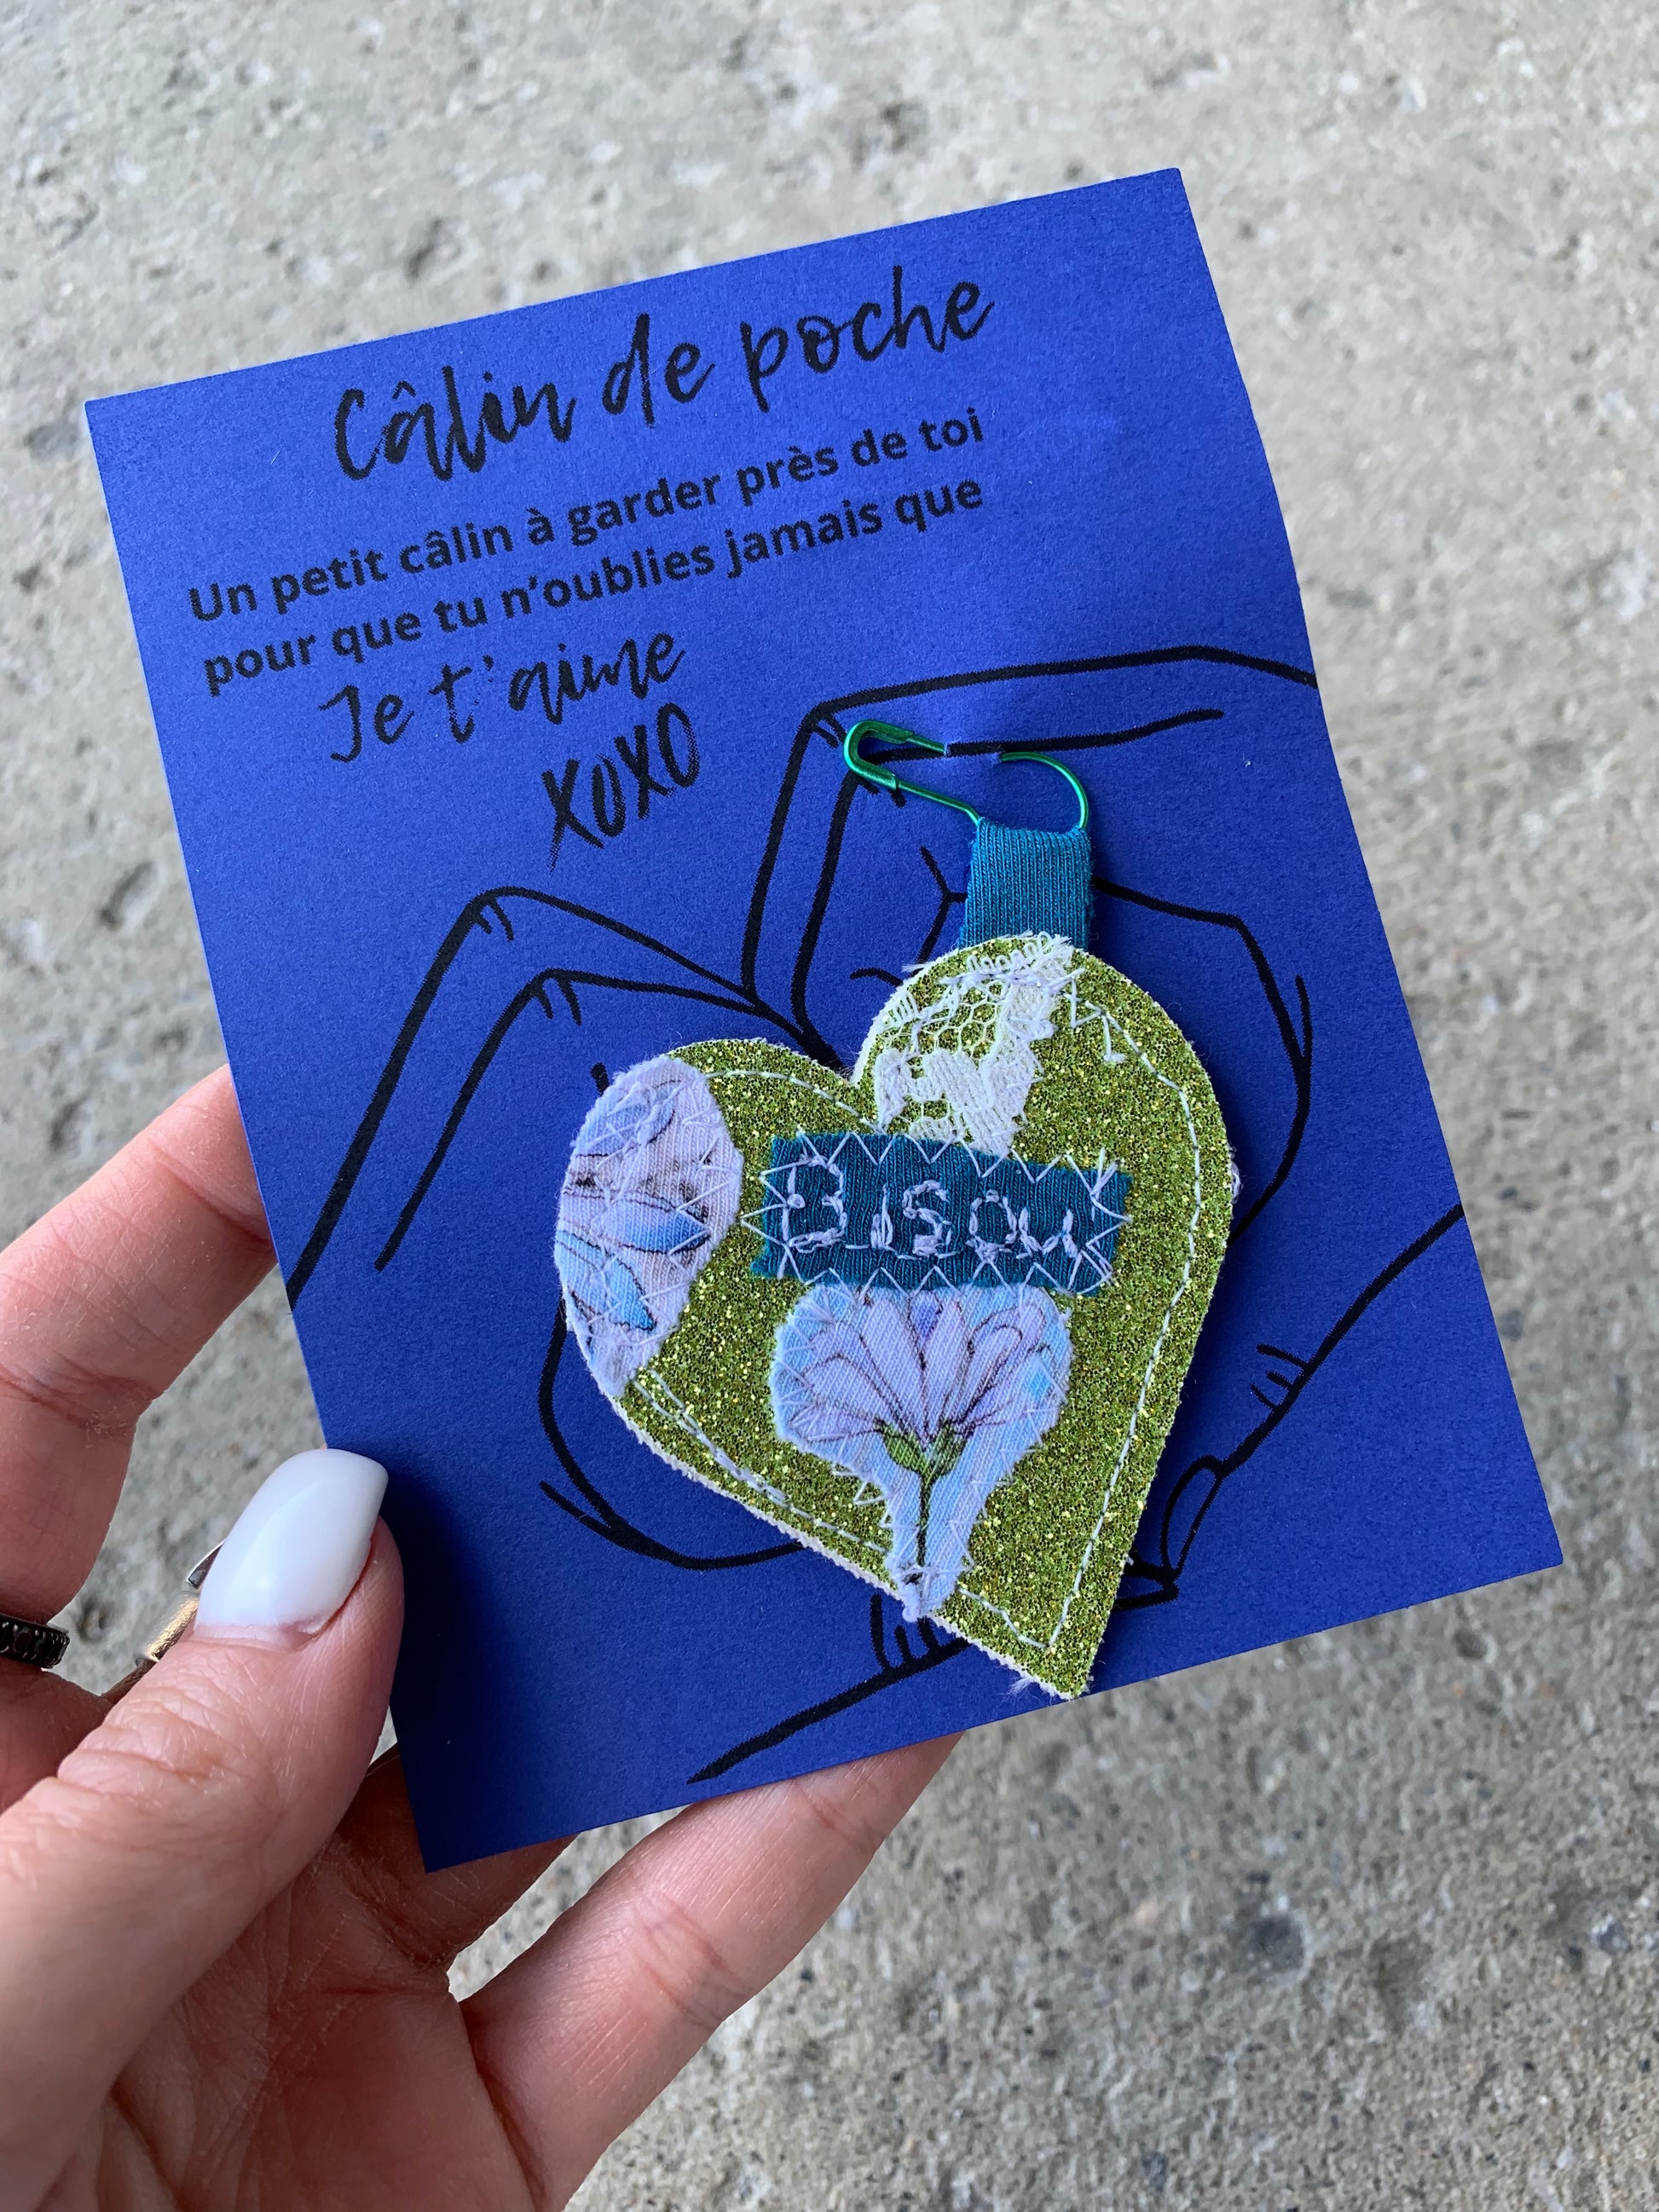 Câlin de poche
Un petit câlin à garder près de toi
pour que tu n'oublies jamais que
Je t'aime
XOXO
Bisou